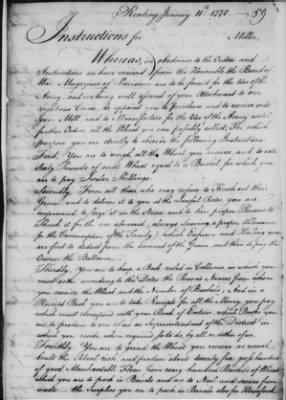 Reading January 11th 1778 — 59
Instructions for Miller,
Whereas, in obedience to the Orders and
Instructions we have received from the Honorable the Board of
War Magazines of Provisions are to be formed for the Use of the
Army and we being well assured of your Attachment to our
Cause, do appoint you to purchase and to receive into
your Mill and to Manufacture for the Use of the Army until
further Orders, all the Wheat you can possibly collect; For which
purpose you are strictly to observe the following Instructions
First. You are to weigh all the Wheat you receive and to rate
Sixty Pounds of Wheat equal to a Bushel for which you
are to pay Twelve Shillings.
Secondly. From all those who may refuse to Thresh out their
Grain and to deliver it to you at the Rates, you are
impowered to seize it in the Straw and to hire proper Persons to
Thresh it for the use aforesaid, always leaving a proper
for the Consumption of the Family; which Expences and you
are first to deduct from the amount of the Grain, and then to pay the
Owner the Ballance.
Thirdly. You are to keep a Book ruled in Columns in which you
must enter according to the Dates the Persons Names from whom
you receive the Wheat and the Number of Bushels; And in a
Receipt Book you are to take Receipts for all the Money you pay
which must correspond with your Book of Entries which Books you
are to produce to one of us as Superintendent of the District in
which you reside when required
Fourthly. You are to grind the Wheat you receive as usual
and produce about twenty five hundred
of good Merchantable Flour from every hundred Bushels of Wheat
which you are to pack in Barrels and are to and secure from
waste — the you are to pack in Barrels also for Horsefeed